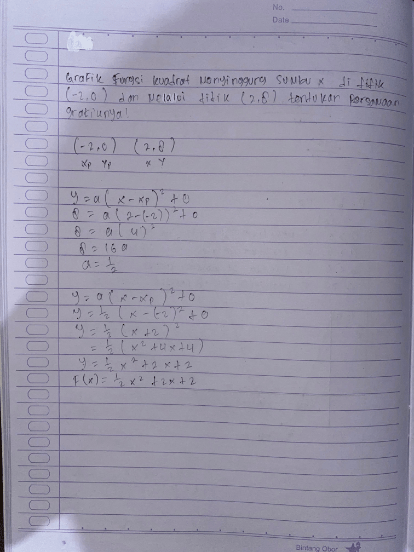 No.
Date
Grafik fungsi kuadrat Menyinggung Sumbu x di titik
(-2,0) dan Melalui titik (2,8) tentukan Persamaan
grafiknya!
(-2,0) (2,8)
xp yp x y
y = a(x-xp)² + 0
8 = a(2-(-2))² + 0
8 = a(4)²
8 = 16 a
a = ½
y = a(x-xp)² + 0
y = ½ (x-(-2)² + 0
y = ½ (x+2)²
= ½ (x²+4x+4)
y = ½ x² + 2x + 2
f(x) = ½ x² + 2x + 2
Bintang Obor